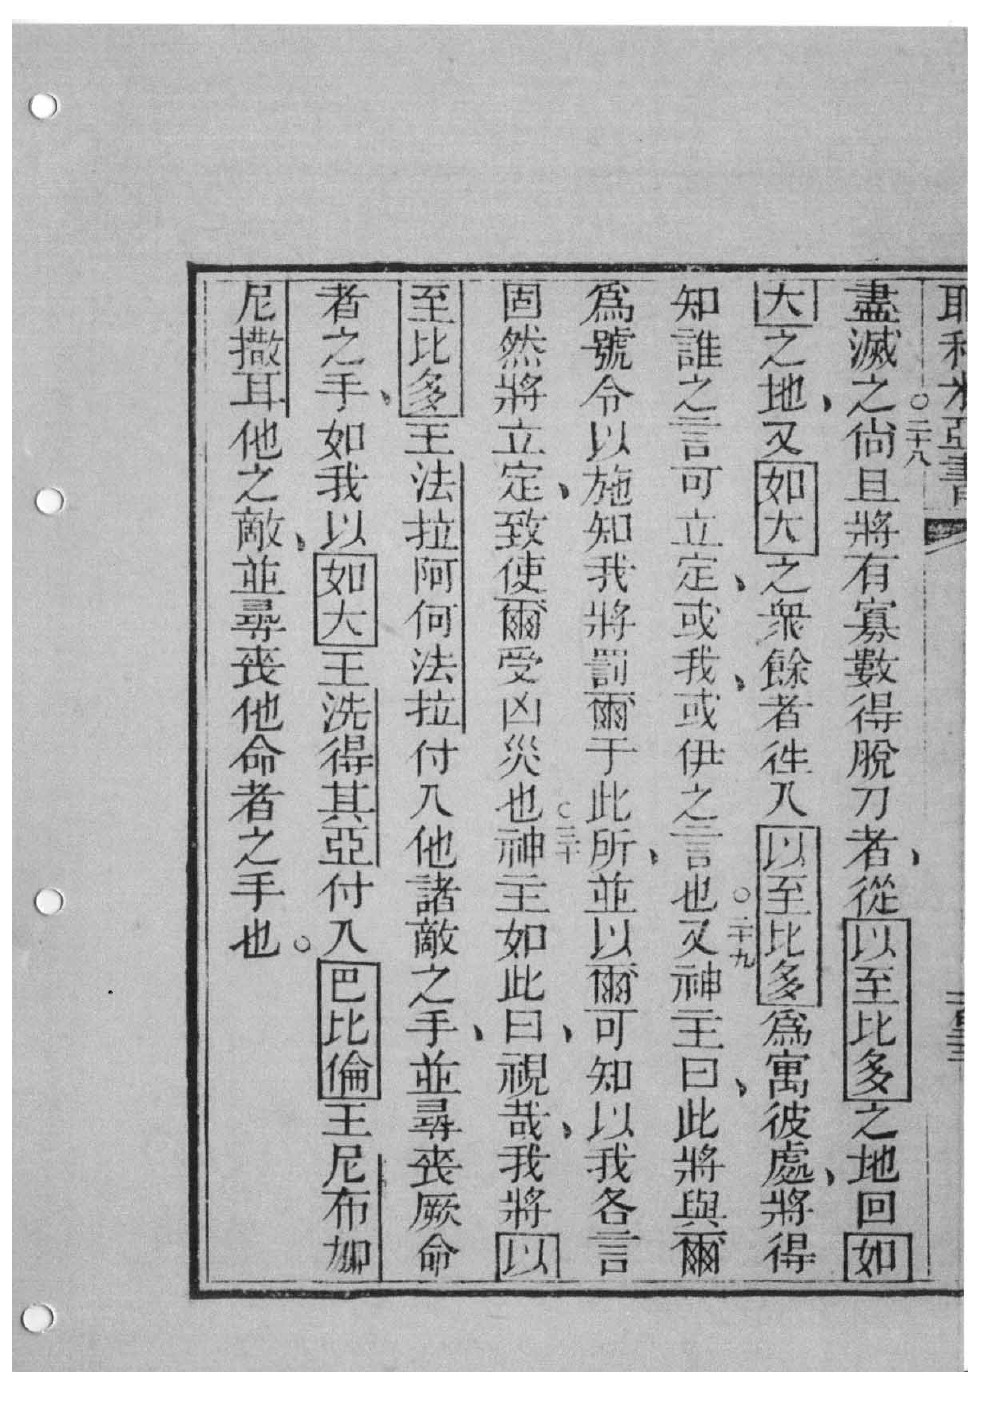 耶利米亞書
盡滅之○二十八尙且將有寡數得脫刀者、從以至比多之地回如
大之地、又如大之衆餘者徃入以至比多爲寓彼處、將得
知誰之言可立定、或我、或伊之言也○二十九又神主曰、此將與爾
爲號令以施知我將罰爾于此所、並以爾可知以我各言
固然將立定、致使爾受凶災也○三十神主如此曰、視哉、我將以
至比多王法拉阿何法拉付入他諸敵之手、並尋喪厥命
者之手、如我以如大王洗得其亞付入巴比倫王尼布加
尼撒耳他之敵、並尋喪他命者之手也○